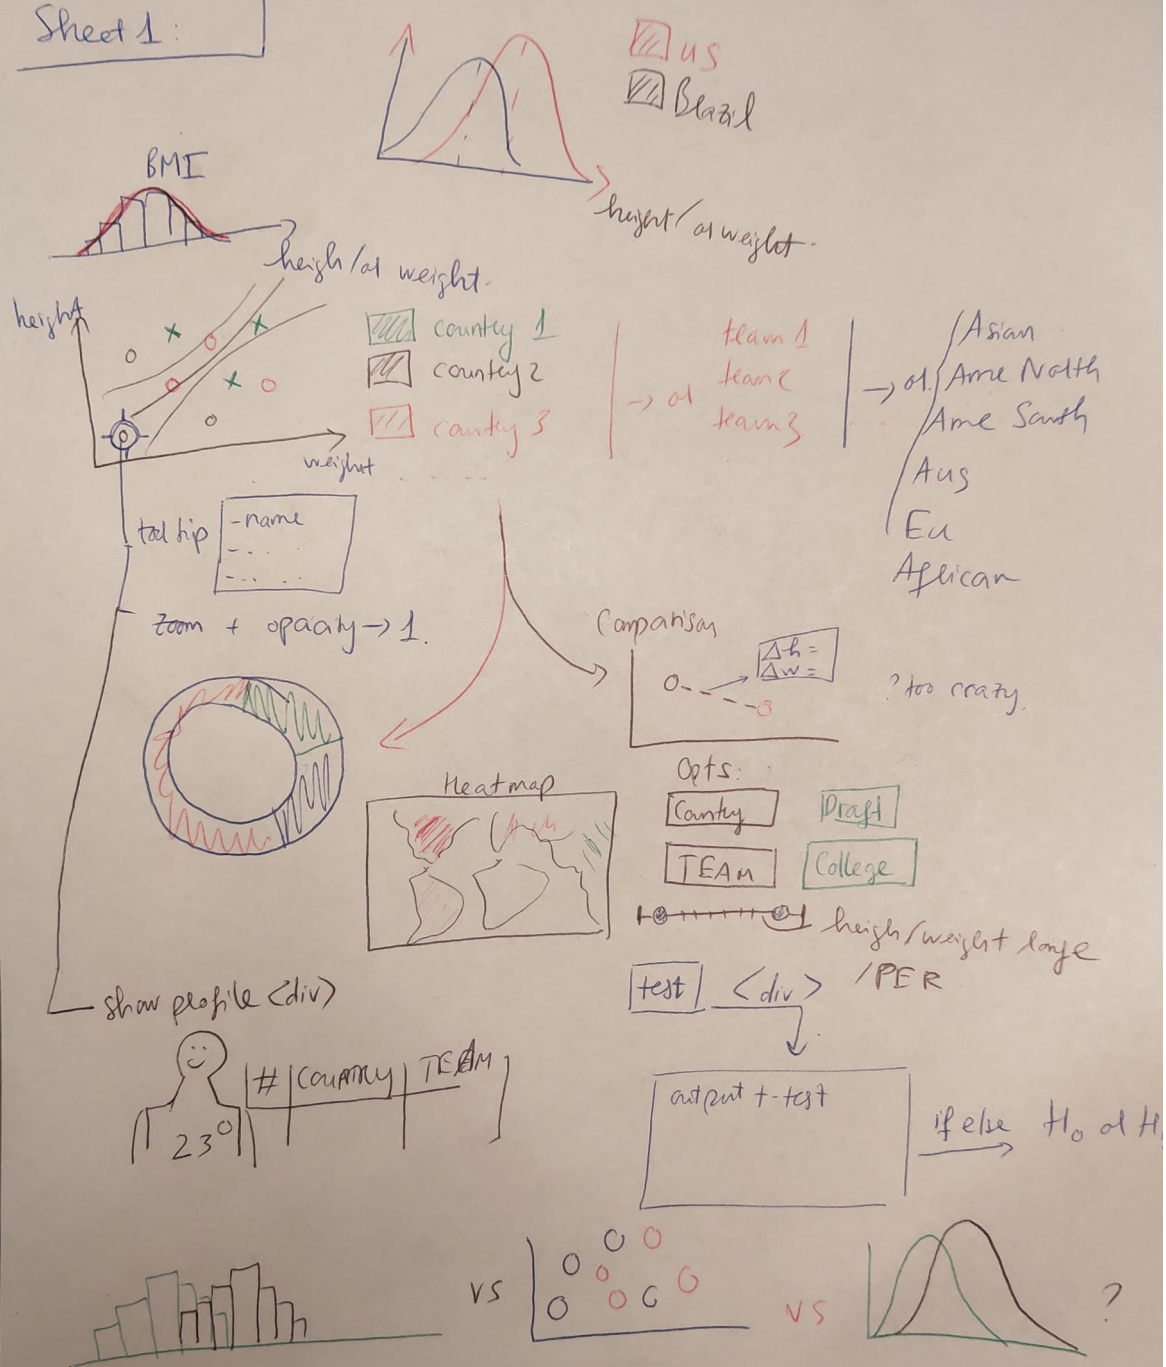 Sheet 1:
US
Brazil
height/or weight.
BMI
heigh/or weight.
height
weight
country 1
country 2
country 3
. . . . .
→ or
team 1
team 2
team 3
→ or
Asian
Ame North
Ame South
Aus
Eu
African
tool tip
-name
- . .
- . . . .
zoom + opacity → 1.
Comparison
Δh =
Δw =
? too crazy.
Heatmap
Opts:
Country
Draft
TEAM
College
heigh/weight range
/PER
test
<div>
show profile <div>
23
#
COUNTRY
TEAM
output t-test
if else
H₀ or H
vs
vs
?